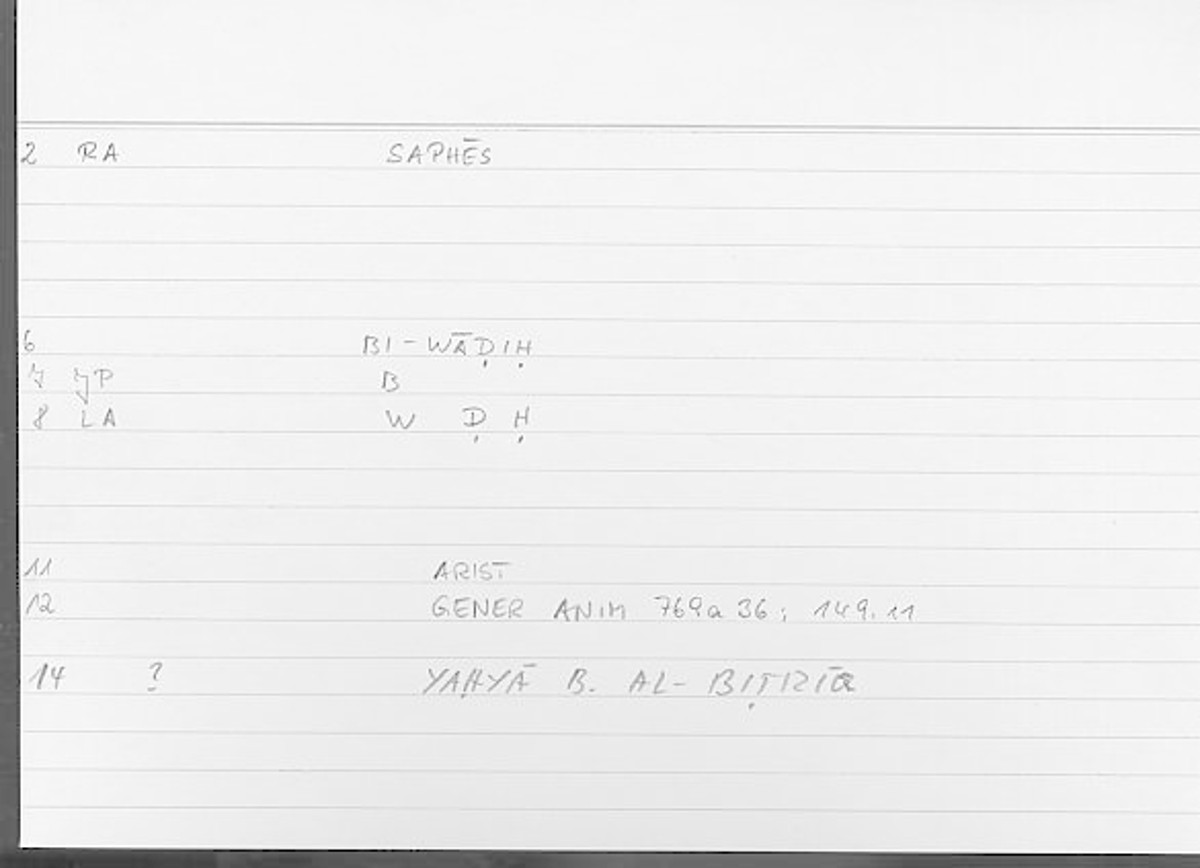 2 RA SAPHĒS
6 BI-WĀḌIḤ
7 JP B
8 LA W Ḍ Ḥ
11 ARIST
12 GENER ANIM 769a 36; 149.11
14 ? YAḤYĀ B. AL-BIṬRĪQ